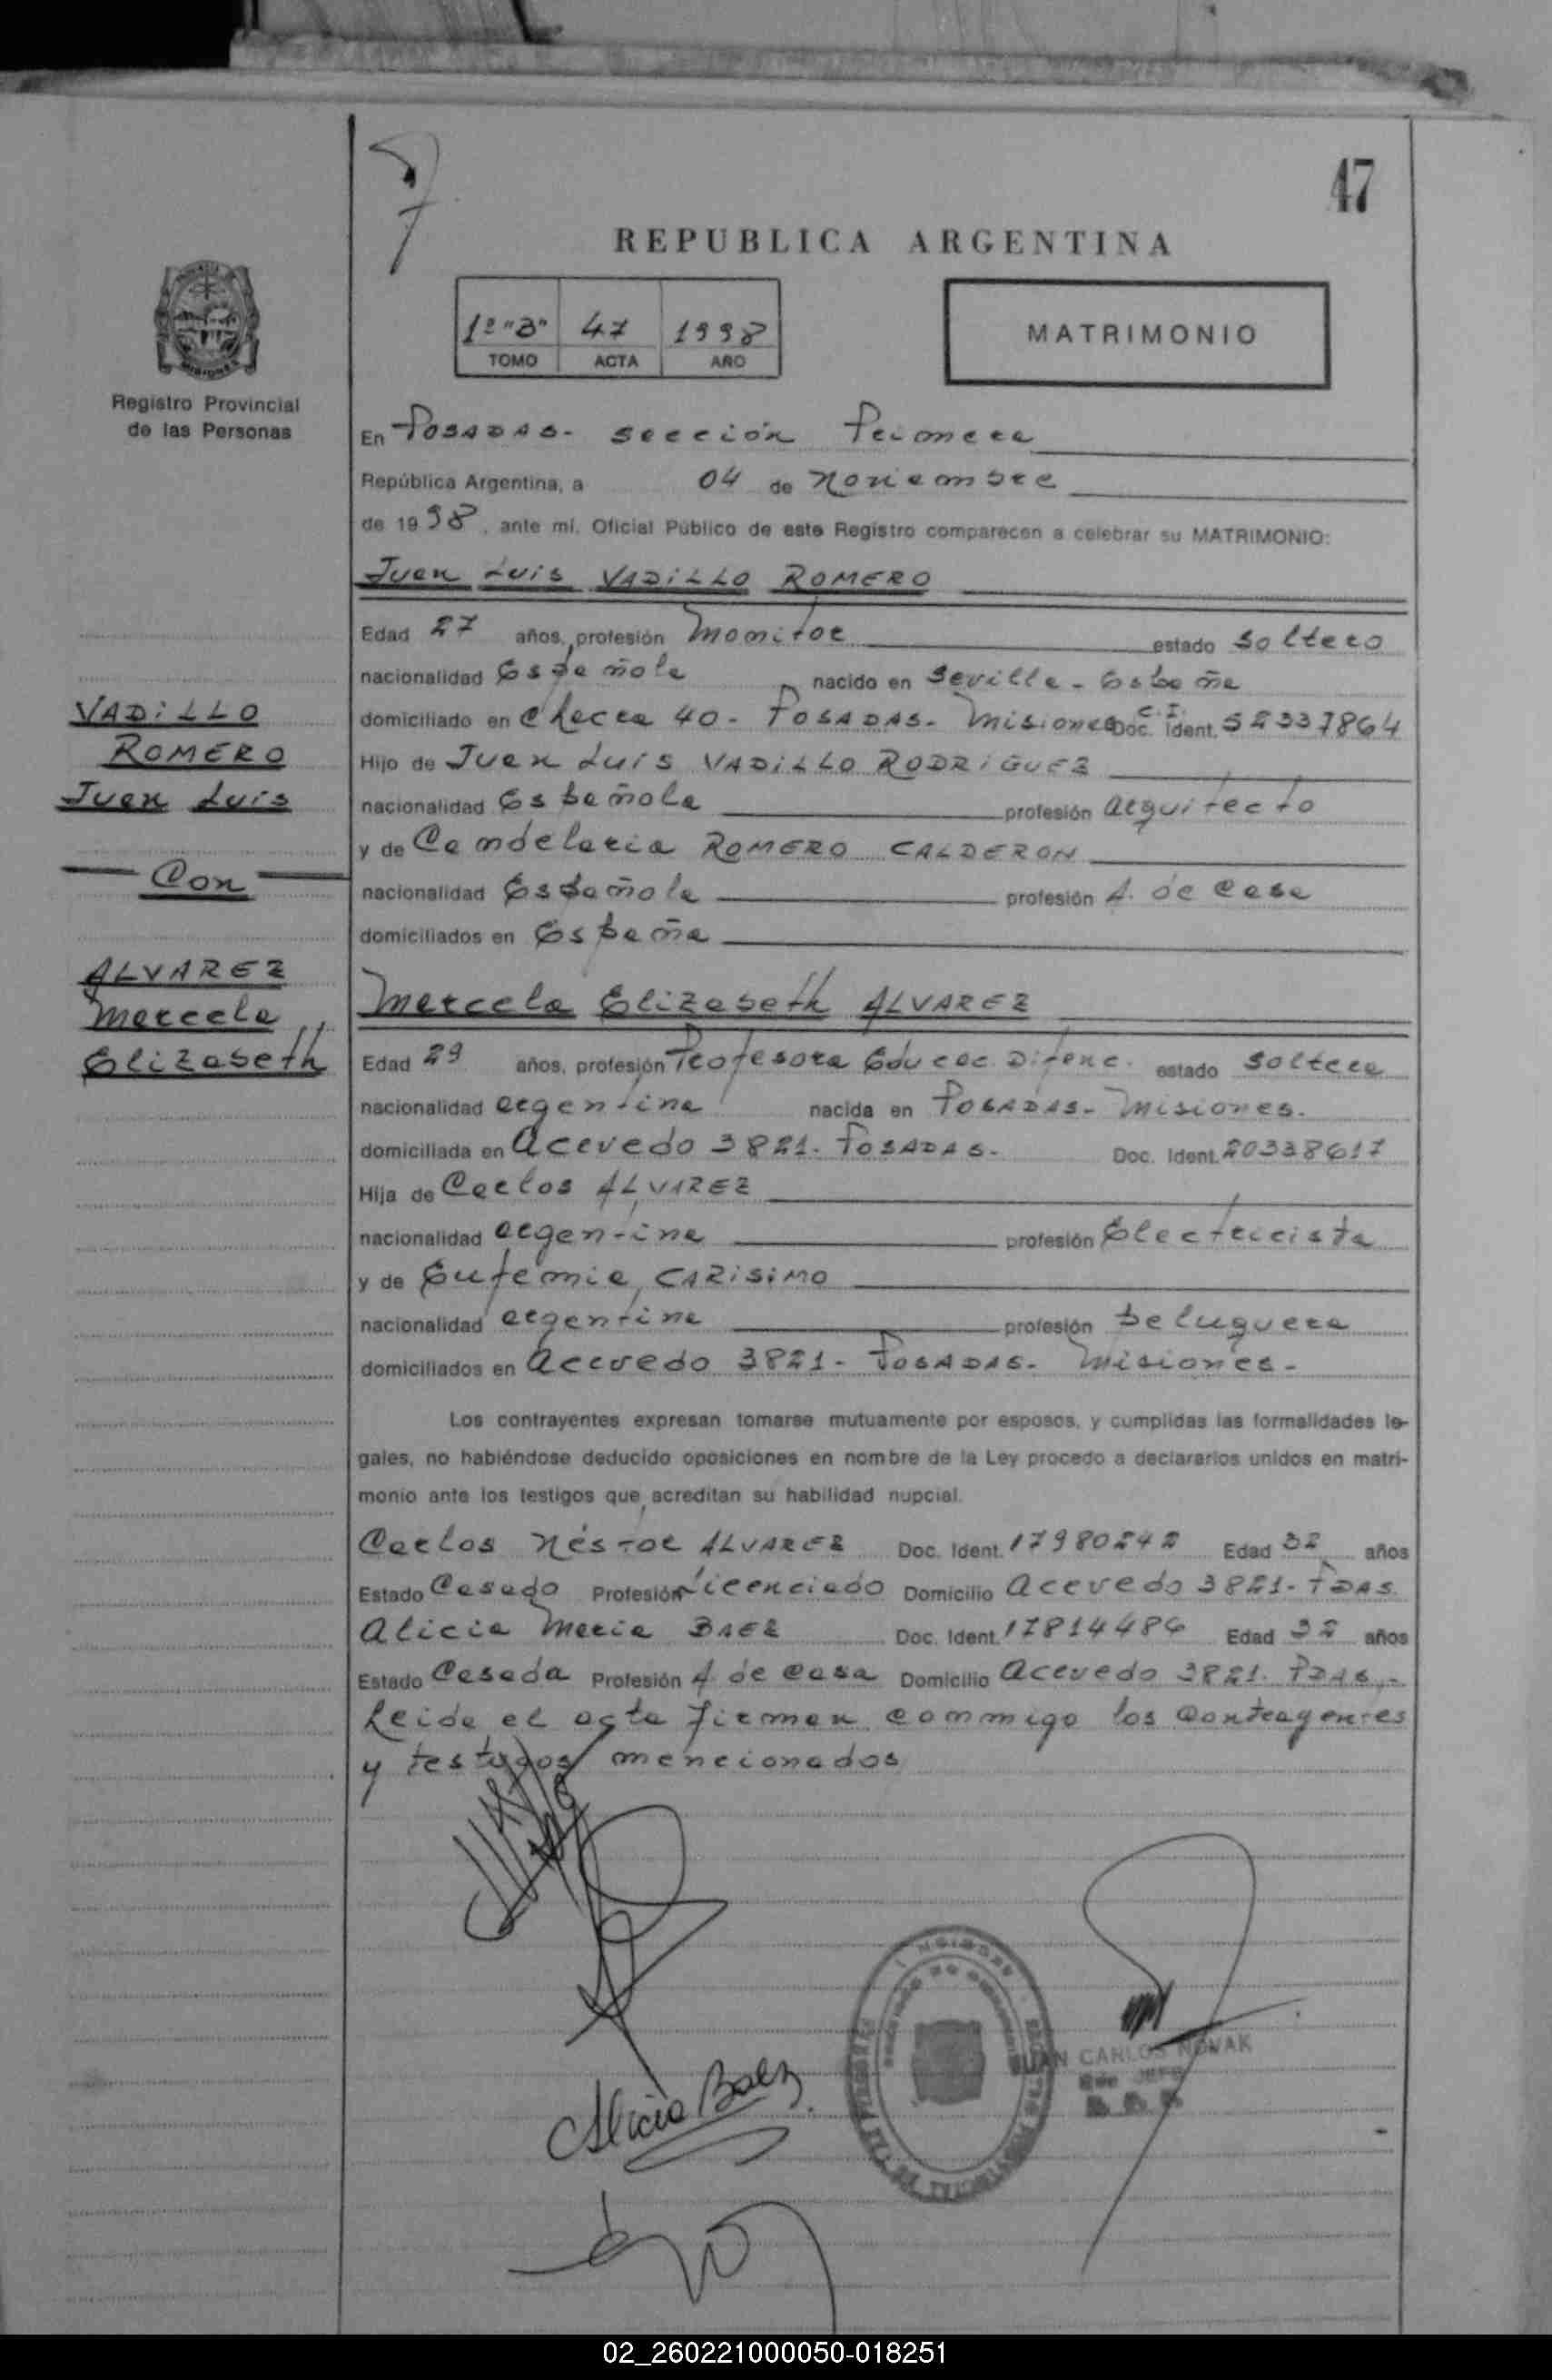 47
REPUBLICA ARGENTINA
1º "B" 47 1998
TOMO ACTA AÑO
MATRIMONIO
Registro Provincial
de las Personas
En POSADAS- sección Primera
República Argentina, a 04 de Noviembre
de 1998, ante mí, Oficial Público de este Registro comparecen a celebrar su MATRIMONIO:
Juan Luis VADILLO ROMERO
Edad 27 años, profesión Monitor estado soltero
nacionalidad Española nacido en Sevilla - España
domiciliado en Chacra 40- POSADAS- Misiones C.I. Doc. Ident. 52337864
Hijo de Juan Luis VADILLO RODRIGUEZ
nacionalidad Española profesión arquitecto
y de Candelaria ROMERO CALDERON
nacionalidad Española profesión A. de casa
domiciliados en España
VADILLO
ROMERO
Juan Luis
Con
ALVAREZ
Marcela
Elizabeth
Marcela Elizabeth ALVAREZ
Edad 29 años, profesión Profesora Educac. Difenc. estado soltera
nacionalidad argentina nacida en POSADAS- Misiones.
domiciliada en Acevedo 3821- POSADAS- Doc. Ident. 20338617
Hija de Carlos ALVAREZ
nacionalidad argentina profesión Electricista
y de Eufemia CARISIMO
nacionalidad argentina profesión peluquera
domiciliados en Acevedo 3821- POSADAS- Misiones-
Los contrayentes expresan tomarse mutuamente por esposos, y cumplidas las formalidades le-
gales, no habiéndose deducido oposiciones en nombre de la Ley procedo a declararlos unidos en matri-
monio ante los testigos que acreditan su habilidad nupcial.
Carlos Néstor ALVAREZ Doc. Ident. 17980242 Edad 32 años
Estado Casado Profesión Licenciado Domicilio Acevedo 3821- PDAS.
Alicia María BAEZ Doc. Ident. 17814484 Edad 32 años
Estado Casada Profesión A. de casa Domicilio Acevedo 3821. PDAS.-
Leida el acta firman conmigo los contrayentes
y testigos mencionados
Alicia Baez
JUAN CARLOS NOVAK
02_260221000050-018251